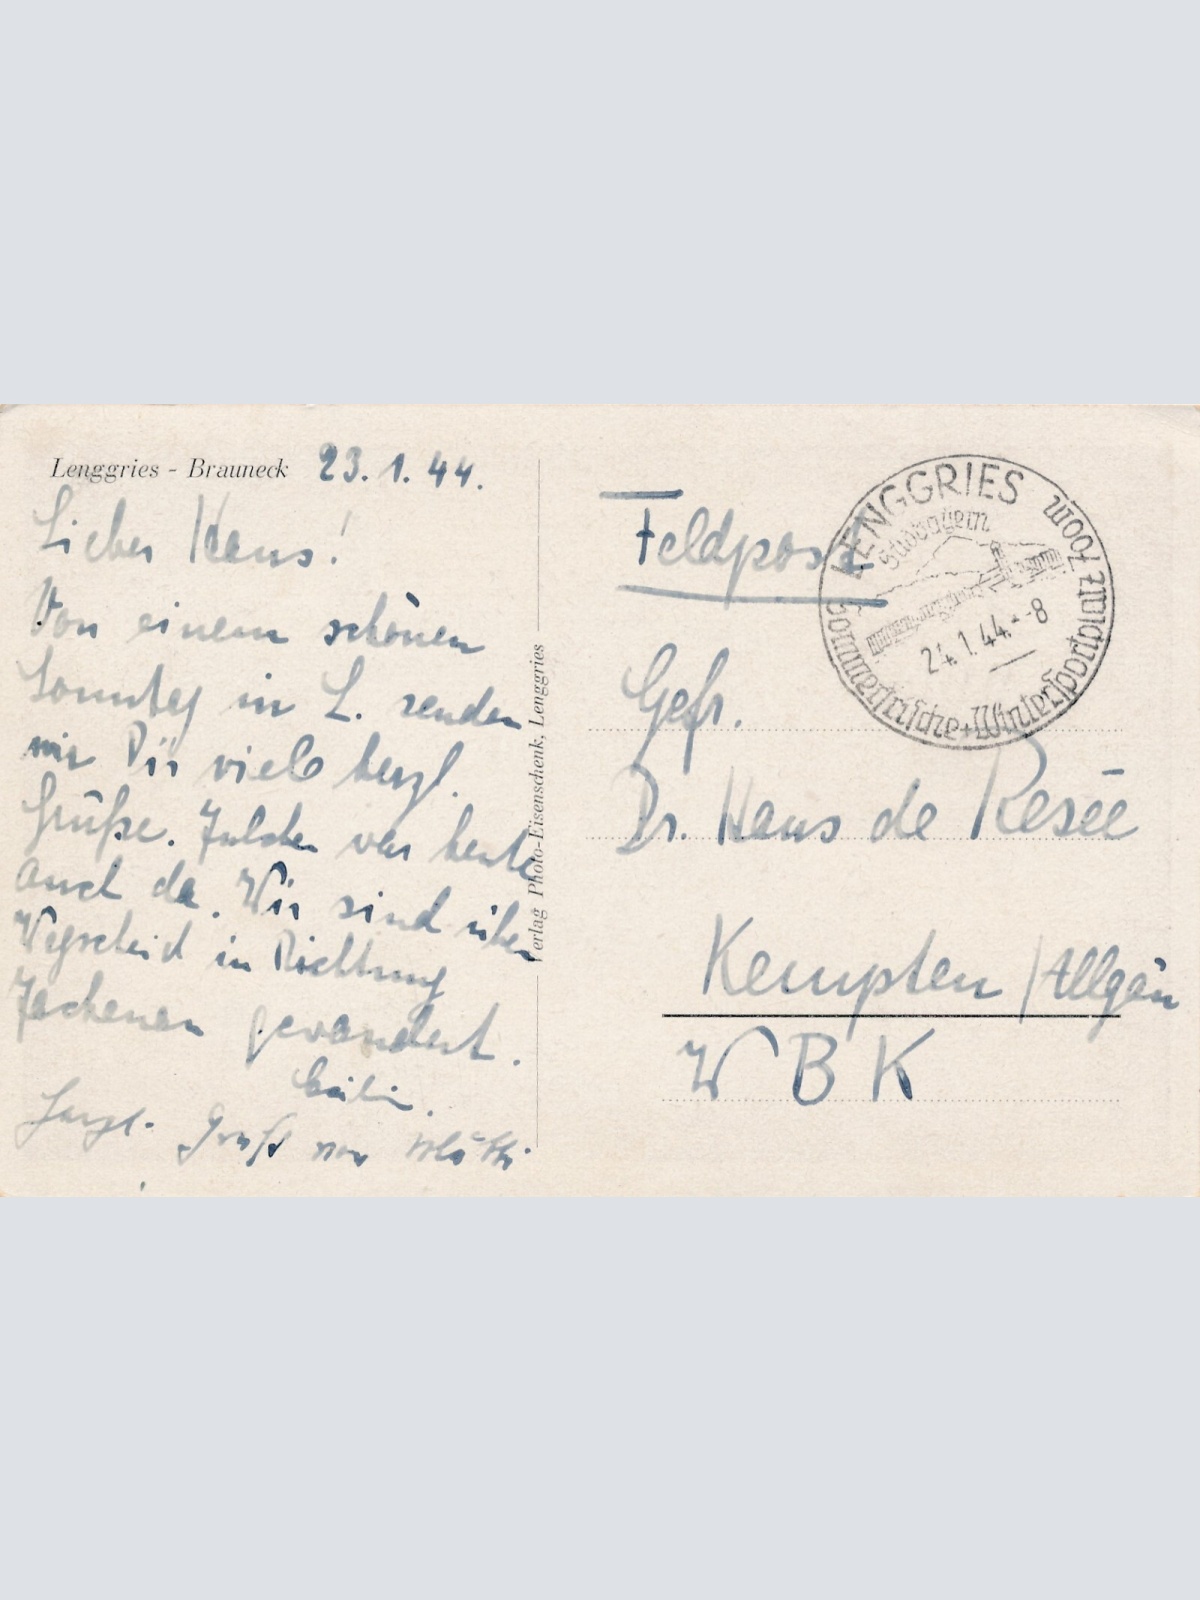 Lenggries - Brauneck 23. 1. 44.
Lieber Hans!
Von einem schönen
Sonntag in L. senden
wir Dir viele herzl.
Grüße. war heute
auch da. Wir sind über
Wegscheid in Richtung
Jachenau gewandert.
Herzl. Gruß von
Verlag Photo-Eisenschenk, Lenggries
Feldpost
LENGGRIES
Südbayern
24.1.44.--8
Sommerfrische + Wintersportplatz 700m
Gefr.
Dr. Hans de Resée
Kempten / Allgäu
WBK